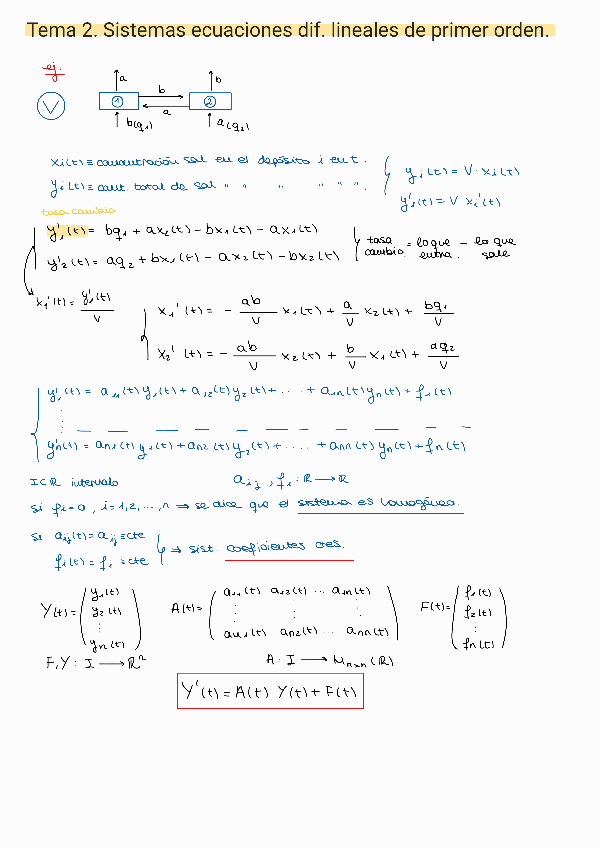 Tema 2. Sistemas ecuaciones dif. lineales de primer orden.
ej.
V
a b
1 b 2
a
b(q₁) a(q₂)
xi(t) ≡ concentración sal en el depósito i en t.
yi(t) ≡ cant. total de sal " " " " " ".
yi(t) = V · xi(t)
yi'(t) = V xi'(t)
tasa cambio
y'₁(t) = bq₁ + ax₂(t) - bx₁(t) - ax₁(t)
y'₂(t) = aq₂ + bx₁(t) - ax₂(t) - bx₂(t)
tasa cambio = lo que entra. - lo que sale
x₁'(t) = y₁'(t)/V
x₁'(t) = - ab/V x₁(t) + a/V x₂(t) + bq₁/V
x₂'(t) = - ab/V x₂(t) + b/V x₁(t) + aq₂/V
y'₁(t) = a₁₁(t)y₁(t) + a₁₂(t)y₂(t) + .... + a₁n(t)yn(t) + f₁(t)
y'n(t) = an₁(t)y₁(t) + an₂(t)y₂(t) + ..... + ann(t)yn(t) + fn(t)
I⊂ℝ intervalo aij, fi : ℝ → ℝ
si fi = 0, i = 1,2,...,n ⇒ se dice que el sistema es homogéneo.
si aij(t) = aij ≡ cte
fi(t) = fi ≡ cte
⇒ sist. coeficientes ctes.
Y(t) = (y₁(t) y₂(t) ⋮ yn(t)) A(t) = (a₁₁(t) a₁₂(t) ... a₁n(t) ⋮ ⋮ ⋮ an₁(t) an₂(t) ... ann(t)) F(t) = (f₁(t) f₂(t) ⋮ fn(t))
F, Y : I → ℝⁿ A : I → Mnxn(ℝ)
Y'(t) = A(t) Y(t) + F(t)